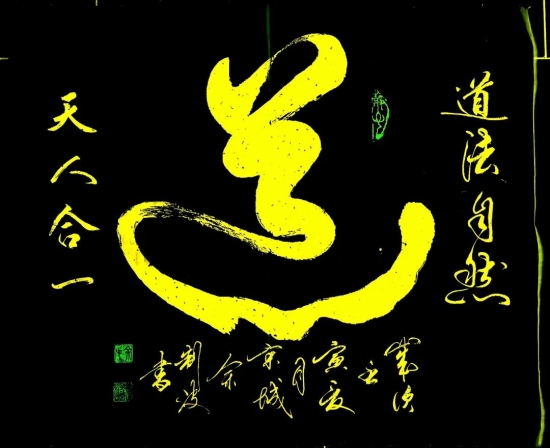 道法自然
道
天人合一
歲次
壬
寅夏
月
京城
余
書